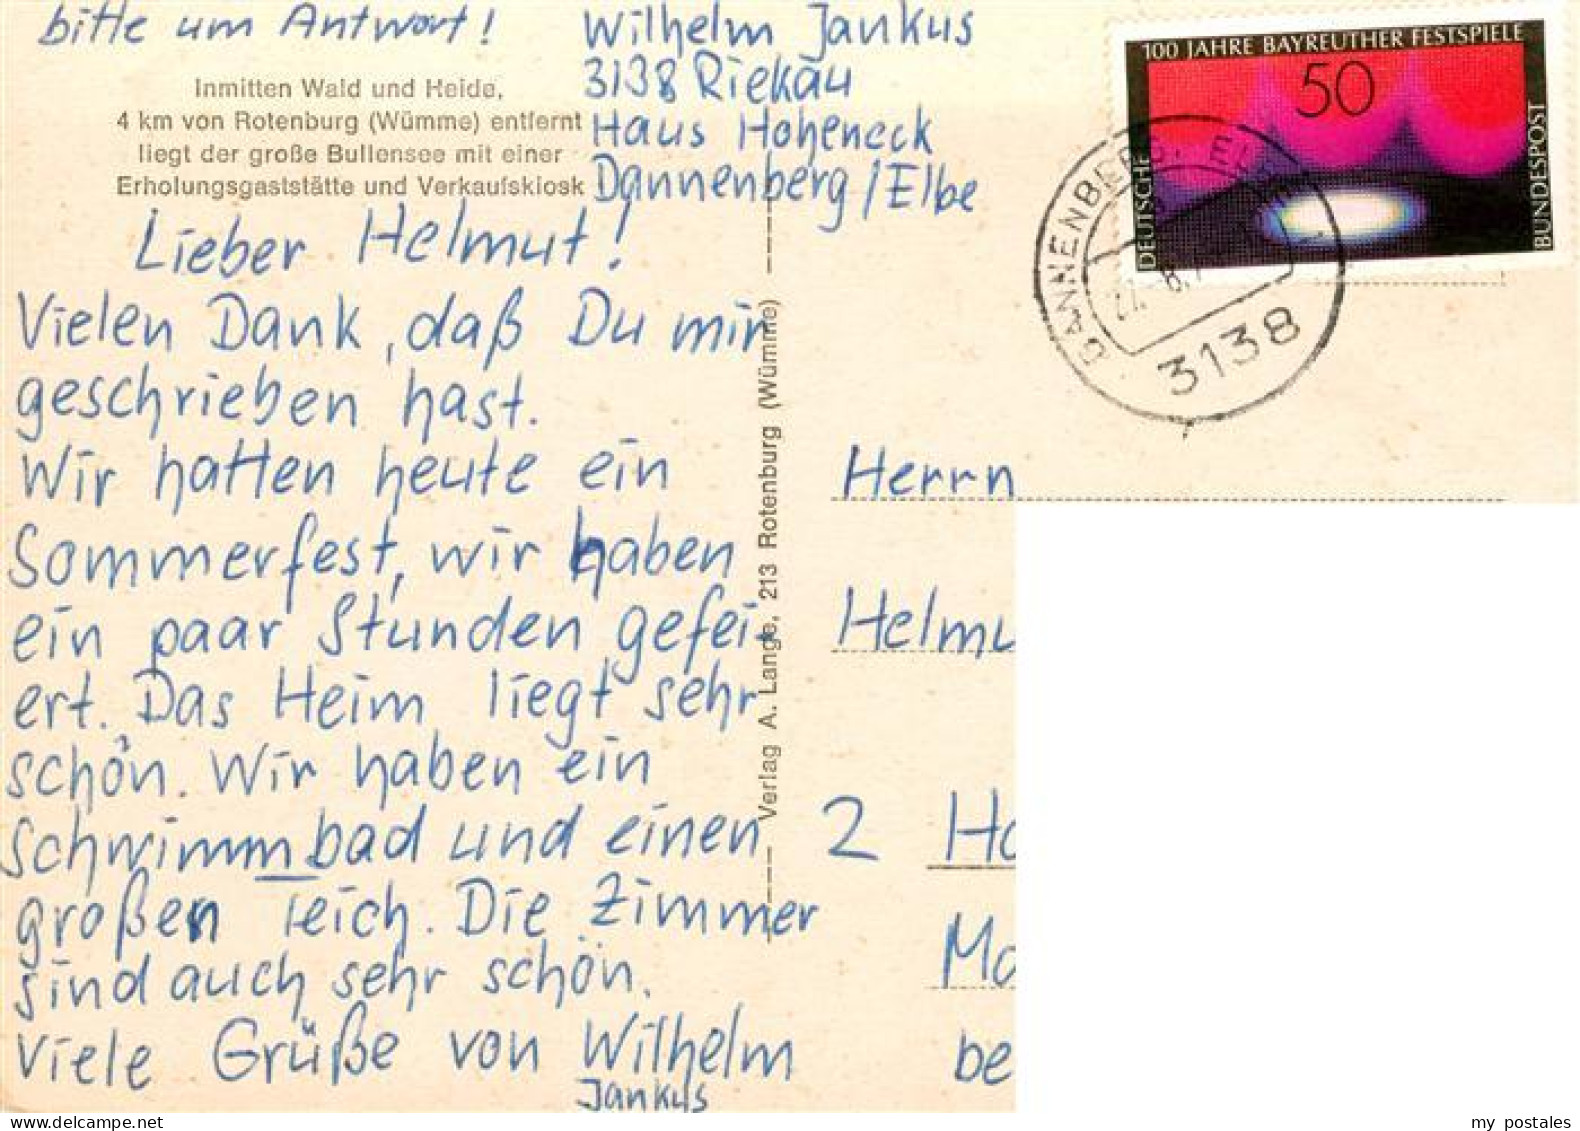 bitte um Antwort!
Inmitten Wald und Heide,
4 km von Rotenburg (Wümme) entfernt
liegt der große Bullensee mit einer
Erholungsgaststätte und Verkaufskiosk
Wilhelm Jankus
3138 Riekau
Haus Hoheneck
Dannenberg/Elbe
Lieber Helmut!
Vielen Dank, daß Du mir
geschrieben hast.
Wir hatten heute ein
Sommerfest, wir haben
ein paar Stunden gefei-
ert. Das Heim liegt sehr
schön. Wir haben ein
Schwimmbad und einen
großen Teich. Die Zimmer
sind auch sehr schön.
Viele Grüße von Wilhelm
Jankus
Verlag A. Lange, 213 Rotenburg (Wümme)
100 JAHRE BAYREUTHER FESTSPIELE
50
DEUTSCHE
BUNDESPOST
3138
Herrn
Helmu
2 Ha
Mo
be
my postales